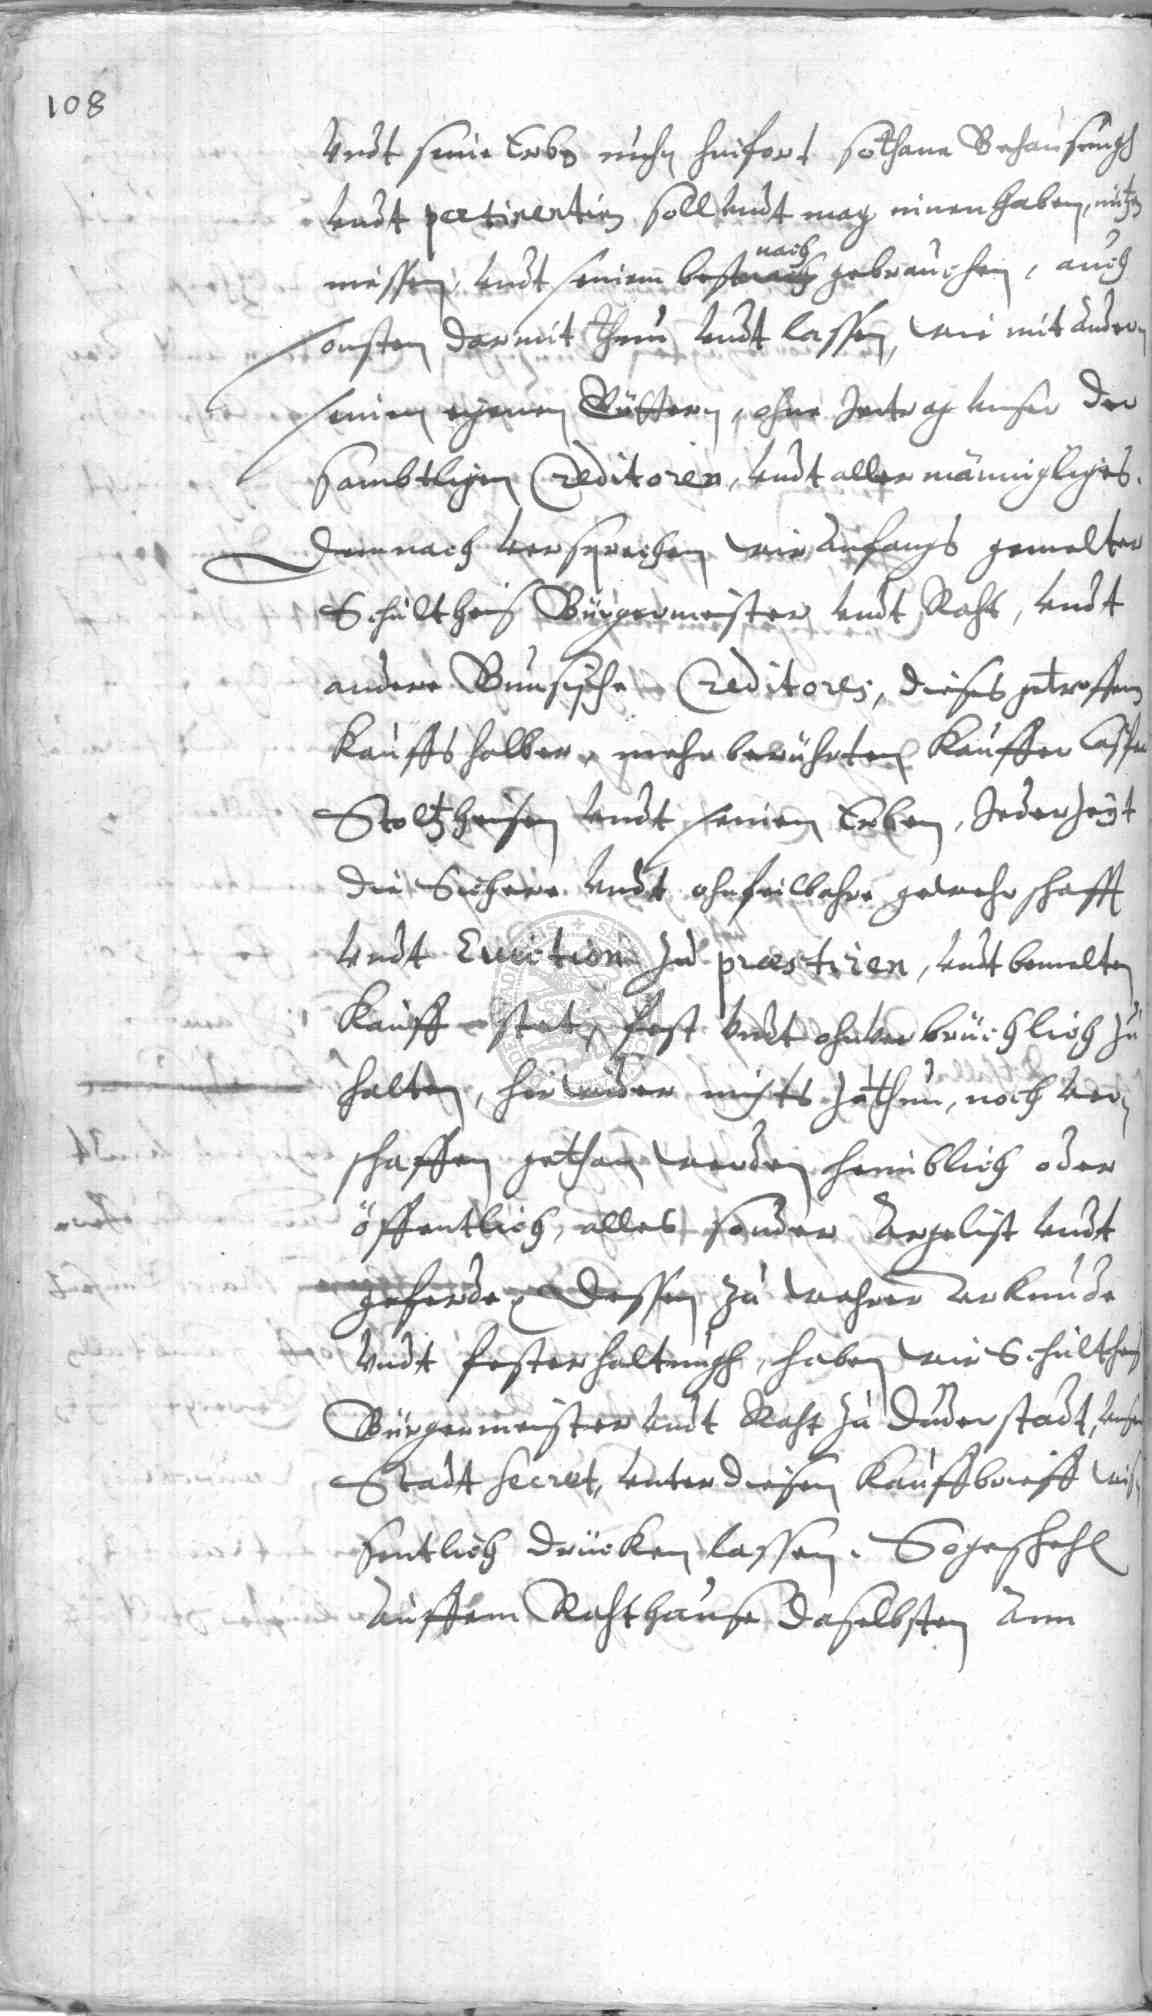 108
Vndt seine Erben nuhn hinfort sothane Behausungh
vndt pertinentien soll vndt mag innen haben, nutzen
niessen, vndt seinem besten nach gebrauchen, auch
sonsten darmit thun vndt lassen, wie mit andern
seinen eigenen Güttern, ohne Intrag vnser der
sambtlichen Creditoren, vndt aller männigliches.
Demnach versprechen wir anfangs gemelter
Schultheis Bürgermeister vndt Raht, vndt
andere Creditores, dieses getroffenen
Kauffs halber, mehr berührten Kauffer
Stoltzheusen vndt seinen Erben, Jederzeyt
die Sichere vndt ohnfeilbahre gewehrschafft
vndt Euiction zu præstiren, vndt bemelten
Kauff stet, fest vndt ohnverbrüchlich zu
halten, hirwider nichts zuthun, noch ver
schaffen gethan werden heimblich oder
öffentlich, alles sonder Argelist vndt
geferde, Dessen zu wahrer Urkunde
Vndt fester haltungh, haben wir Schultheis
Bürgermeister vndt Raht zu Duderstadt, vnser
Stadt Secret, unter diesen Kauffbrieff wis
sentlich drücken lassen. So geschehn
Auffem Rahthause daselbsten Am